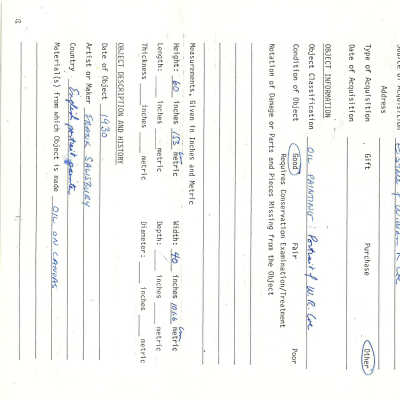 Source of Acquisition ESTATE of William R. Coe
Address
Type of Acquisition Gift Purchase Other
Date of Acquisition
OBJECT INFORMATION
Object Classification OIL PAINTING: Portrait of W.R. Coe
Condition of Object Good Fair Poor
Requires Conservation Examination/Treatment
Notation of Damage or Parts and Pieces Missing from the Object
Measurements, Given in Inches and Metric
Height: 60 inches 153 cm metric Width: 40 inches 102.6 cm metric
Length: inches metric Depth: inches metric
Thickness inches metric Diameter: inches metric
OBJECT DESCRIPTION AND HISTORY
Date of Object 1930
Artist or Maker FRANK SALISBURY
Country English portrait painter
Material(s) from which Object is made OIL ON CANVAS